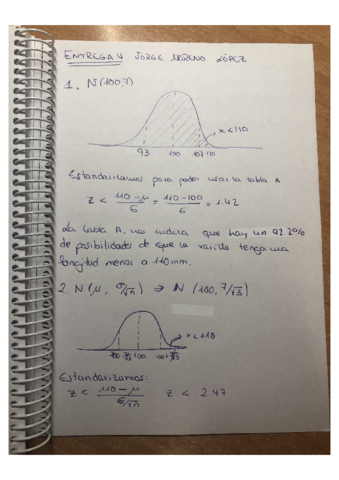 ENTREGA 4 JORGE MORENO LÓPEZ
1. N(100,7)
x<110
93 100 107 110
Estandarizamos para poder usar la tabla A
z < 110-μ/σ = 110-100/6 = 1.42
La tabla A, nos indica que hay un 92.2%
de posibilidades de que la varilla tenga una
longitud menor a 110mm.
2. N(μ, σ/√n) ⇒ N (100, 7/√3)
x<110
100-7/√3 100 100+7/√3
Estandarizamos:
z < 110-μ/σ/√n z < 2.47